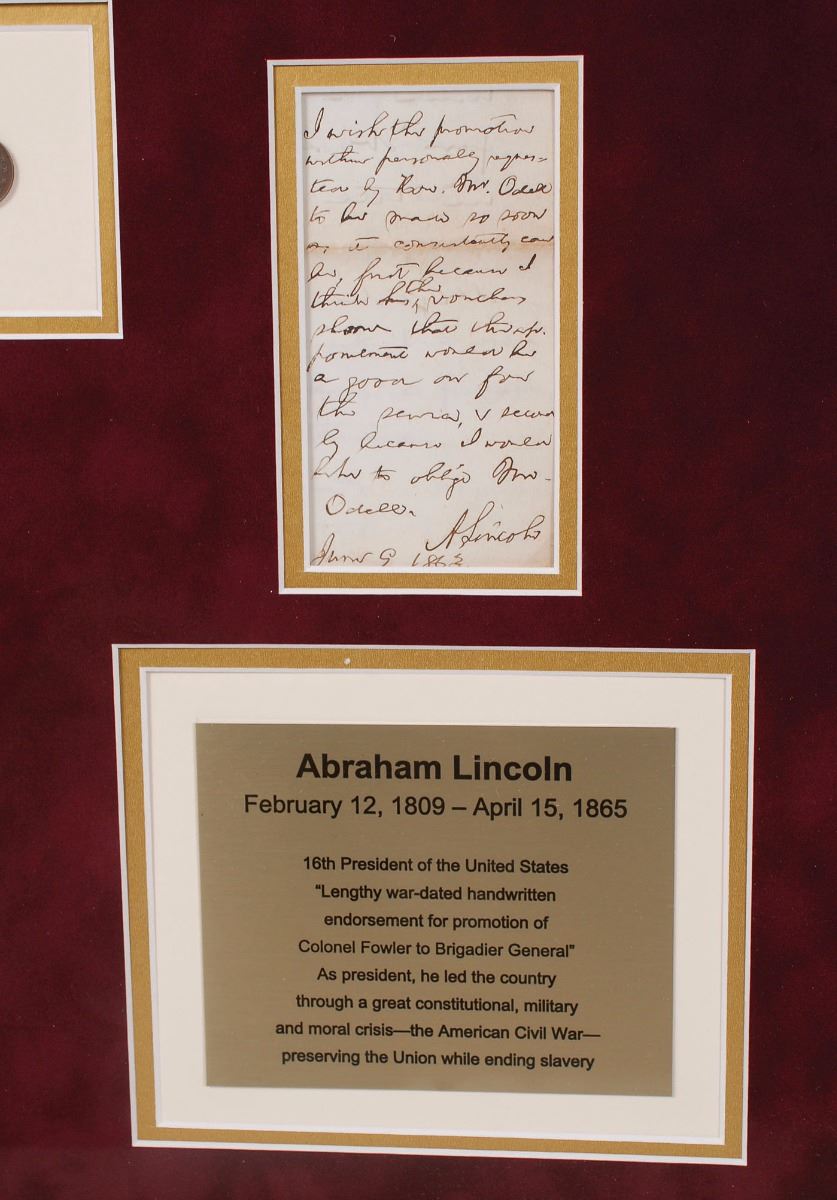 I wish the promotion
within personally reques-
ted by Hon. Mr. Odell
to be made so soon
as it consistently can
be, first because I
think the vouchers
show that this ap-
pointment would be
a good one for
the service, & second
ly because I would
like to oblige Mr.
Odell.
A. Lincoln
June 9 1863
Abraham Lincoln
February 12, 1809 – April 15, 1865
16th President of the United States
“Lengthy war-dated handwritten
endorsement for promotion of
Colonel Fowler to Brigadier General”
As president, he led the country
through a great constitutional, military
and moral crisis—the American Civil War—
preserving the Union while ending slavery